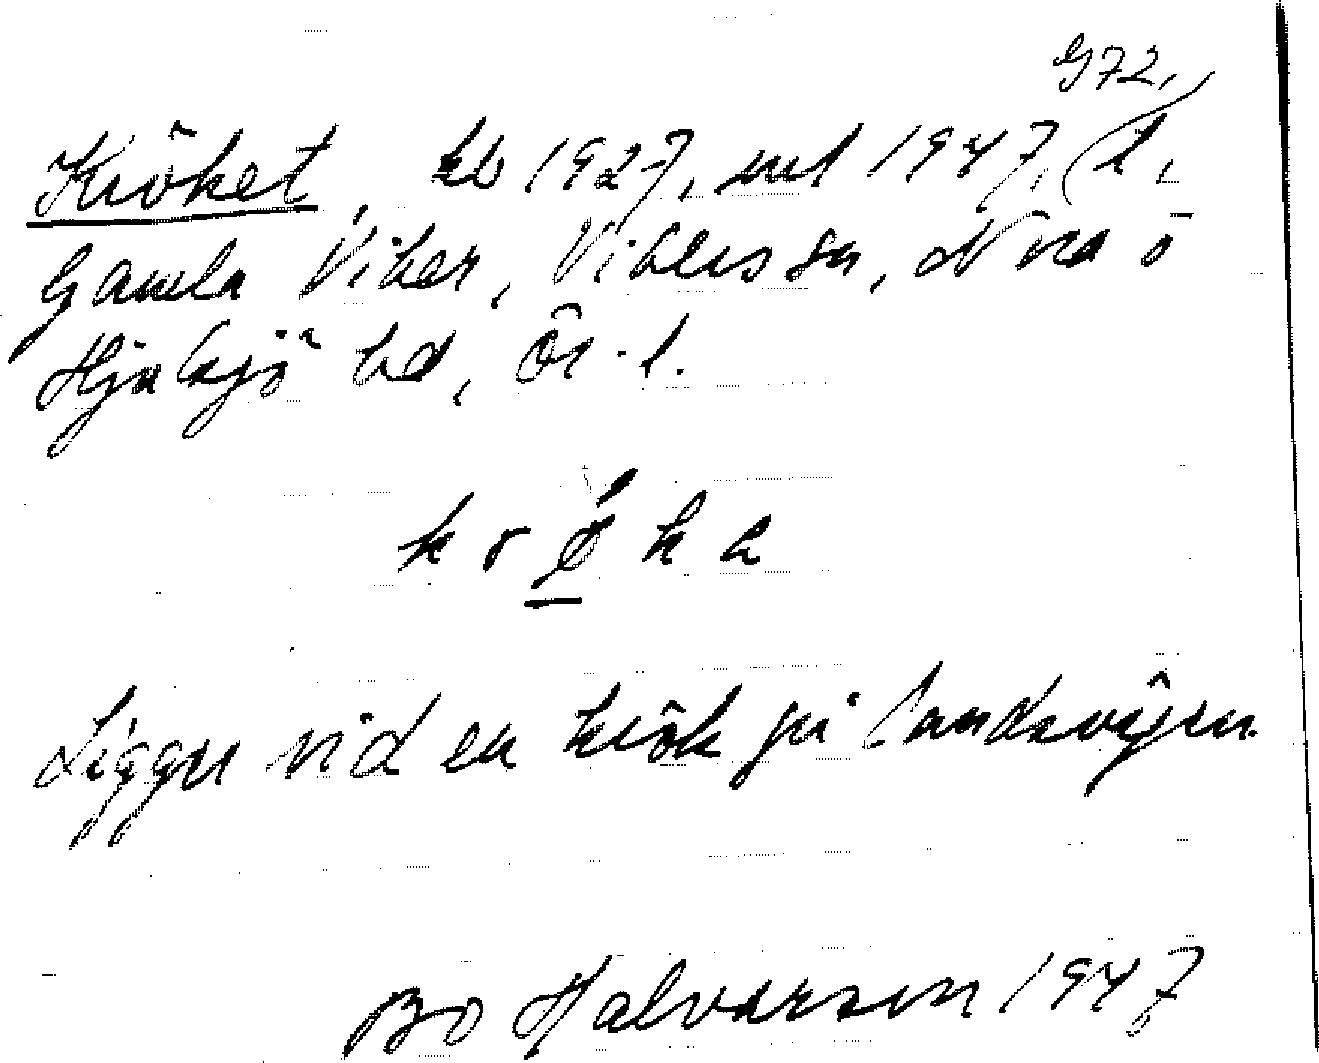 G 72,
Kröket, kb 1927, uel 1947, (t,
Gamla Viker, Vikers sn, Nora o
Hjulsjö bd, Ör. l.
k r ö k a
Ligger vid en krök på landsvägen.
Bo Halvarson 1947